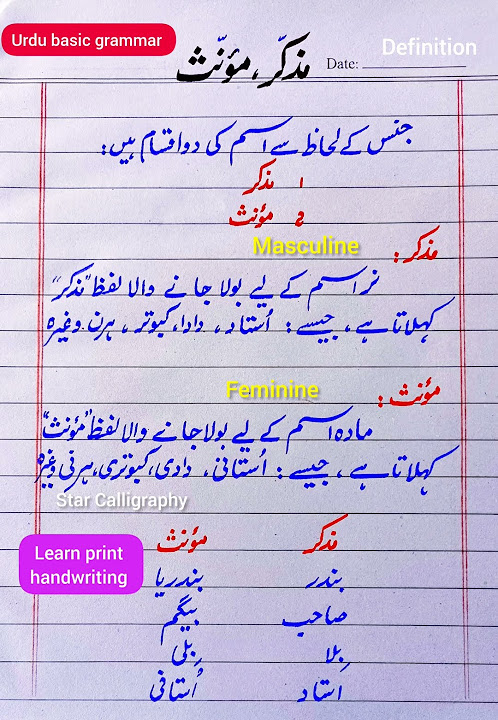 Urdu basic grammar
Definition
مذکّر، مؤنّث
Date:
جنس کے لحاظ سے اسم کی دو اقسام ہیں:
۱ مذکر
۲ مؤنث
Masculine
مذکر:
نر اسم کے لیے بولا جانے والا لفظ "مذکر"
کہلاتا ہے، جیسے: اُستاد، دادا، کبوتر، ہرن وغیرہ
Feminine
مؤنث:
مادہ اسم کے لیے بولا جانے والا لفظ "مؤنث"
کہلاتا ہے، جیسے: اُستانی، دادی، کبوتری، ہرنی وغیرہ
Star Calligraphy
مذکر مؤنث
Learn print
handwriting
بندر بندریا
صاحب بیگم
بِلا بِلی
استاد اُستانی